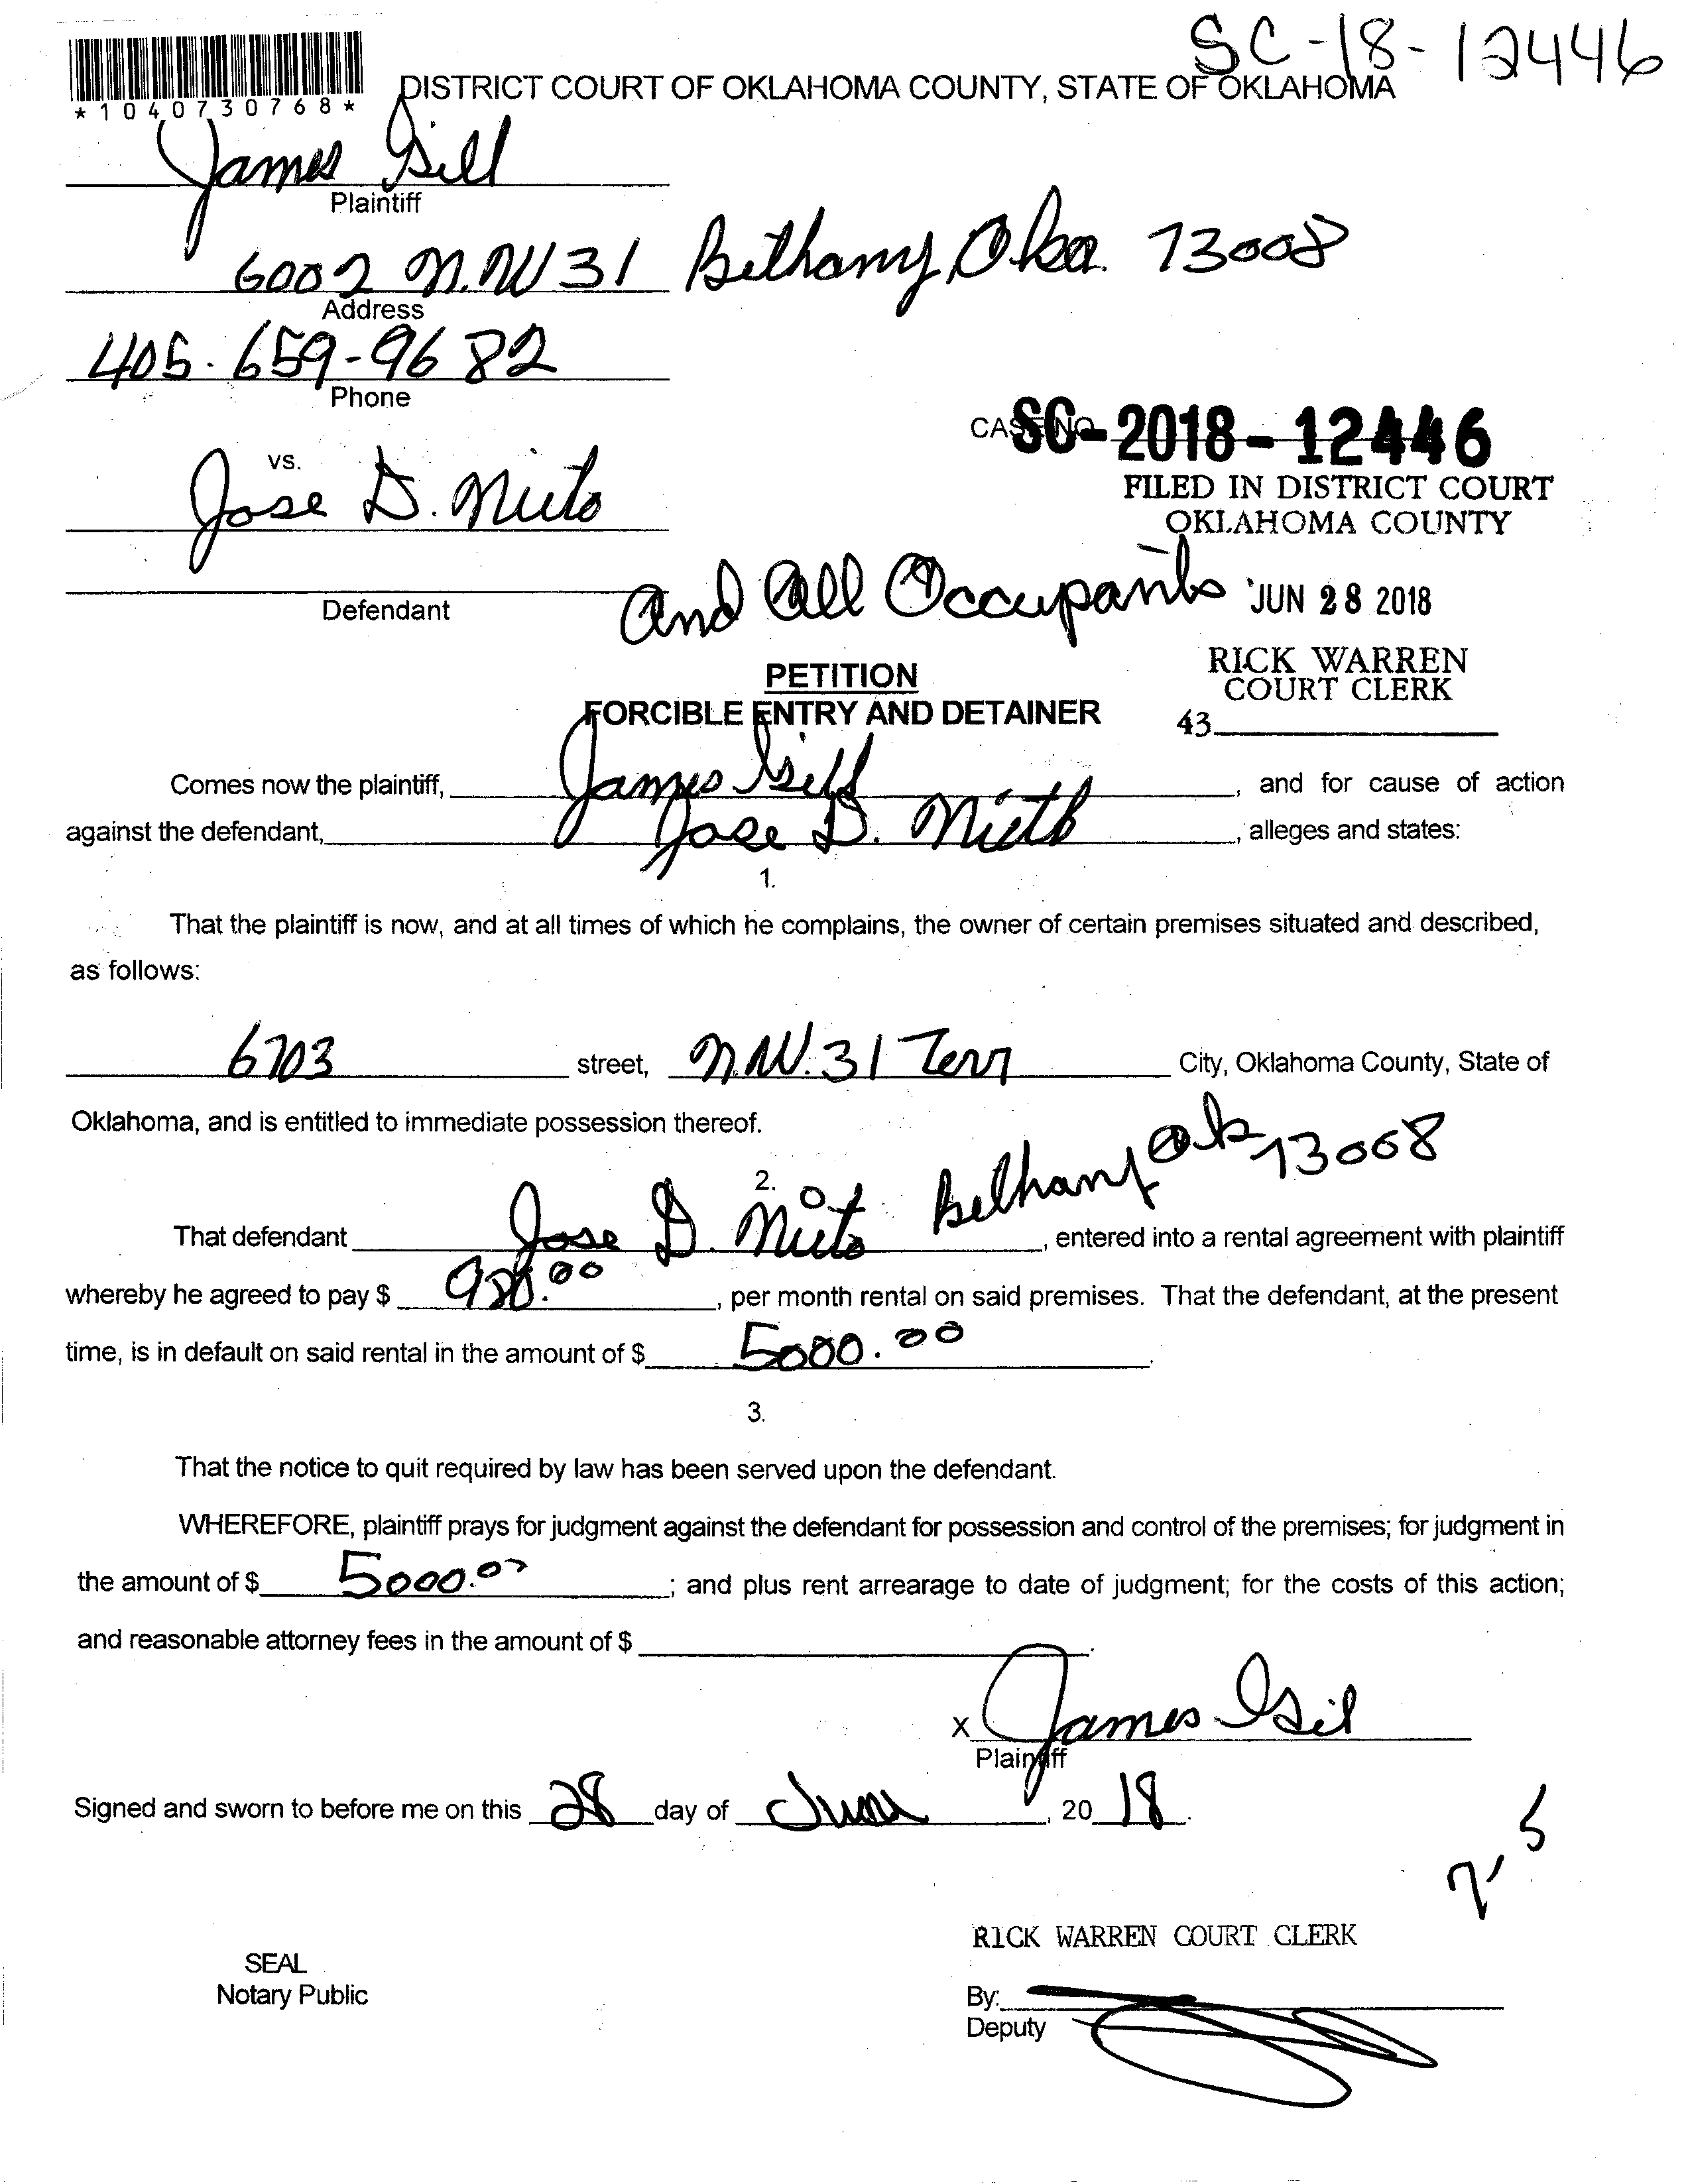 SC-18-12446
*1040730768*
DISTRICT COURT OF OKLAHOMA COUNTY, STATE OF OKLAHOMA
James Gill
Plaintiff
6002 N.W 31 Bethany, Okla. 73008
Address
405.659-9682
Phone
CASE NO. SC-2018-12446
FILED IN DISTRICT COURT
OKLAHOMA COUNTY
vs.
Jose D. Nieto
And All Occupants
JUN 28 2018
Defendant
RICK WARREN
COURT CLERK
43
PETITION
FORCIBLE ENTRY AND DETAINER
Comes now the plaintiff, James Gill, and for cause of action
against the defendant, Jose D. Nieto, alleges and states:
1.
That the plaintiff is now, and at all times of which he complains, the owner of certain premises situated and described,
as follows:
6703 street, N.W. 31 Terr City, Oklahoma County, State of
Oklahoma, and is entitled to immediate possession thereof.
Bethany Ok 73008
2.
That defendant Jose D. Nieto, entered into a rental agreement with plaintiff
whereby he agreed to pay $ , per month rental on said premises. That the defendant, at the present
time, is in default on said rental in the amount of $ 5000.00.
3.
That the notice to quit required by law has been served upon the defendant.
WHEREFORE, plaintiff prays for judgment against the defendant for possession and control of the premises; for judgment in
the amount of $ 5000.00; and plus rent arrearage to date of judgment; for the costs of this action;
and reasonable attorney fees in the amount of $
X James Gill
Plaintiff
Signed and sworn to before me on this 28 day of June, 2018.
RICK WARREN COURT CLERK
SEAL
Notary Public
By:
Deputy